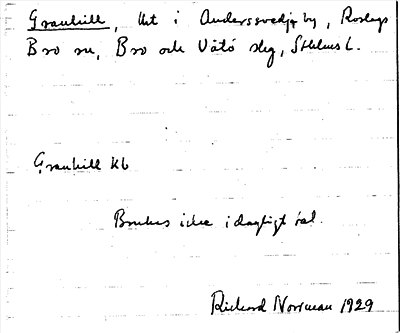 Granhill, Hst i Anderssvedja by, Roslags
Bro sn, Bro och Vätö slg, Sthlms l.
Granhill kb
Brukas icke i dagligt tal.
Rickard Norrman 1929